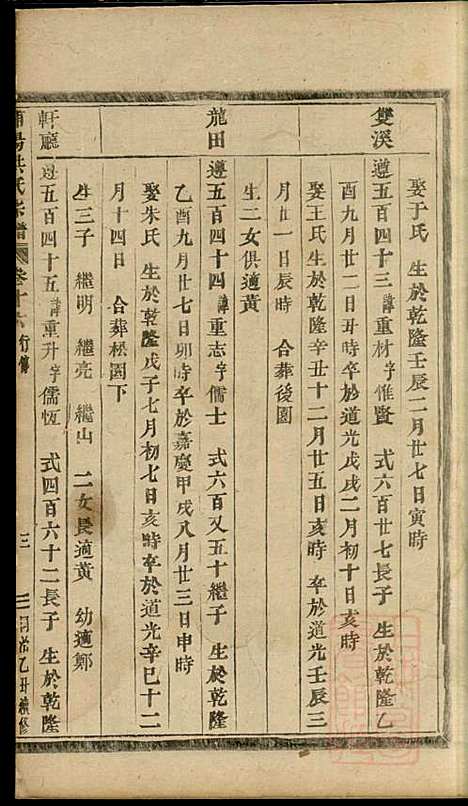 娶于氏 生於乾隆壬辰二月廿七日寅時
雙溪
遵五百四十三諱重材字惟賢 式六百廿七長子 生於乾隆乙
酉九月廿二日丑時卒於道光戊戌二月初十日亥時
娶王氏 生於乾隆辛丑十二月廿五日亥時 卒於道光壬辰三
月廿一日辰時 合葬後園
生二女俱適黄
龍田
遵五百四十四諱重志字儒士 式六百又五十繼子 生於乾隆
乙酉九月廿七日卯時卒於嘉慶甲戌八月廿三日申時
娶朱氏 生於乾隆戊子七月初七日亥時卒於道光辛巳十二
月十四日 合葬松園下
生三子 繼明 繼亮 繼山 二女長適黄 幼適鄭
軒廳
遵五百四十五諱重升字儒恆 式四百六十二長子 生於乾隆
陽洪氏宗譜 卷十六 行傳 三 乙丑續修